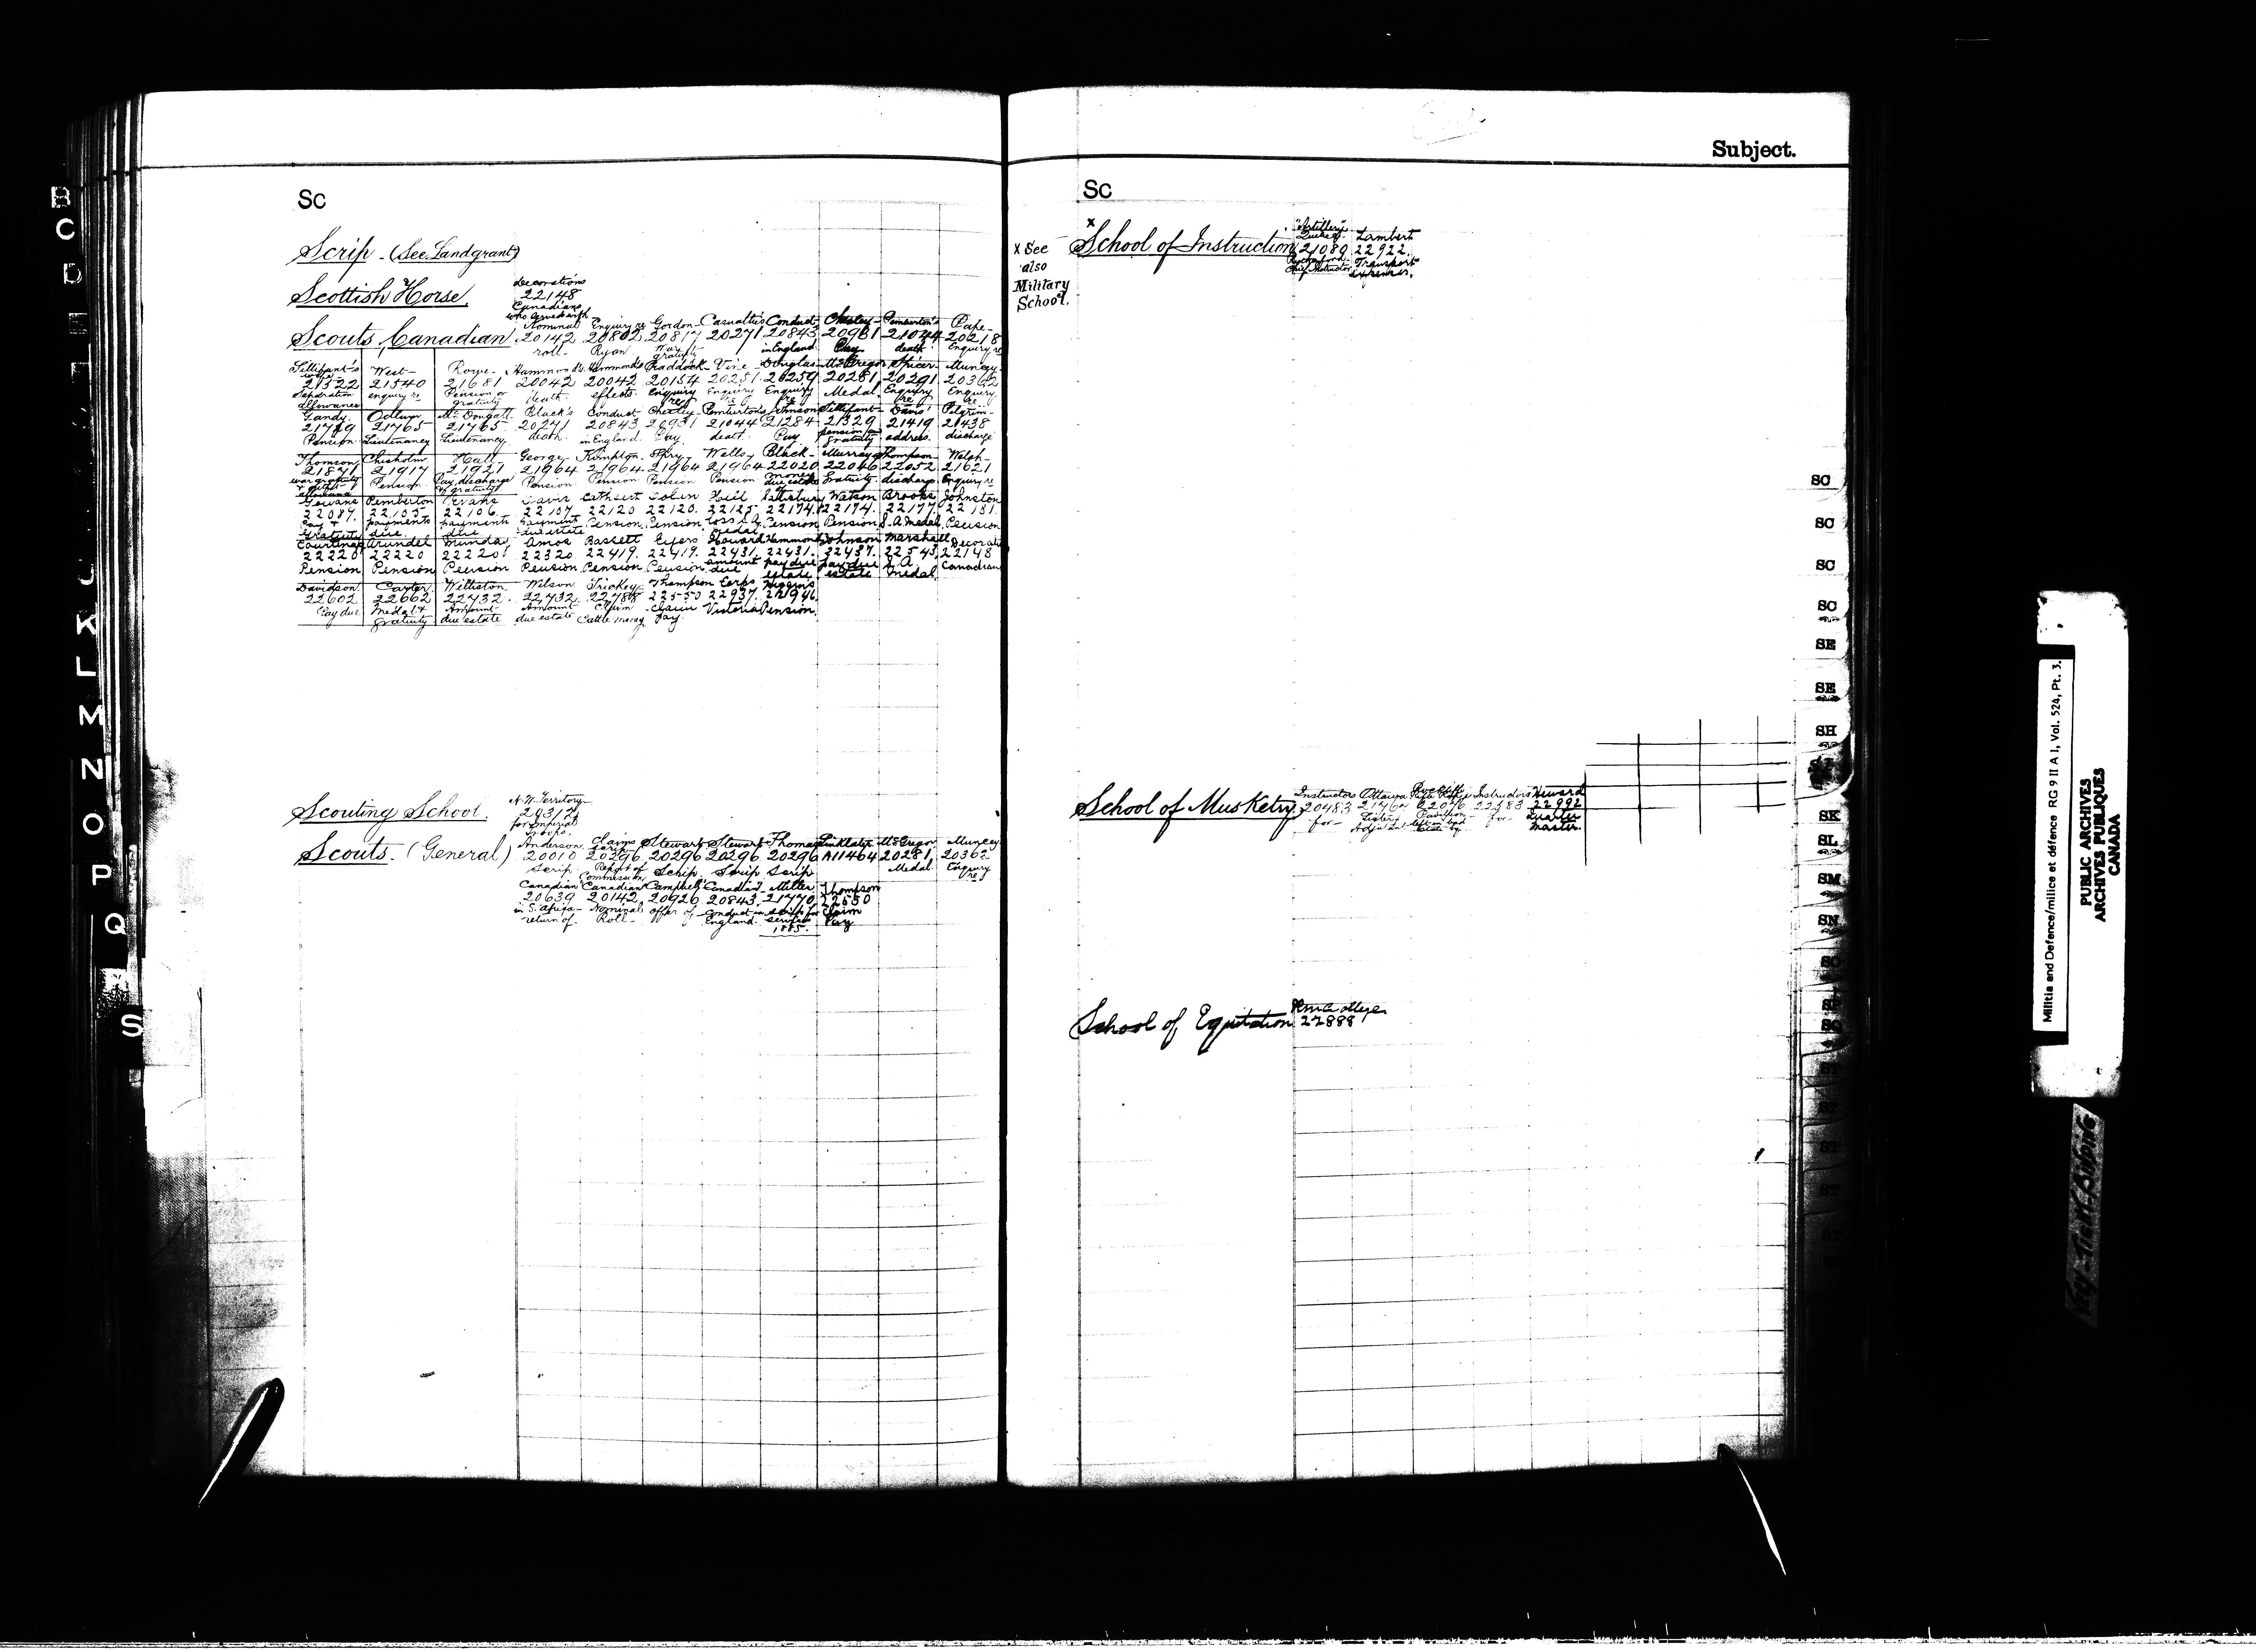 Subject.
Sc
Scrip - (See Landgrant)
Scottish Horse.
decorations
22148
Canadians
who served with
Scouts, Canadian
Nominal Enquiry re Gordon- Casualties Conduct- Chesley- Pemberton's Pape-
20142 20802 20817 20271 20843 20981 21044 20218
roll- Ryan War gratuity in England Pay death Enquiry re
Tillifant's West- Rowe- Hammond's Hammond's Craddock- Vine- Douglas- McGregor Spicer- Muncey-
wife
21322 21540 21681 20042 20042 20154 20251 20259 20281 20291 20362
Separation allowance enquiry re Pension or gratuity death effects. Enquiry re Enquiry re Enquiry re Medal. Enquiry re Enquiry re
Gandy. Odlum McDougall Black's Conduct Chesley- Pemberton's Johnson Tillifant- Davis' Pilgrim-
21789 21765 21765 20271 20843 20981 21044 21284 21329 21419 21438
Pension Lieutenancy Lieutenancy death in England Pay death Pay pension or gratuity address. discharge
Thomson Chisholm Hall- George- Kimpton- Spry- Wells- Black- Murray Thompson- Welsh-
21871 21917 21921 21964 21964 21964 21964 22020 22046 22052 21621
war gratuity Pension Pay, discharge & gratuity Pension. Pension Pension Pension money due estate Gratuity discharge Enquiry re
Gowans Pemberton Evans Davis Cathsert Colin Hill Salisbury Watson Brooks Johnston
22087. 22105 22106. 22107 22120 22120. 22125 22174. 22174. 22177. 22181.
Pay & Gratuity payments due payments due payment due estate Pension Pension loss S.A. Medal Pension Pension S.A. Medal Pension
Arundel Amos Bassett Eyers Howard Hammond Johnson Marshall
22220 22220 22220 22320 22419. 22419. 22431. 22431. 22437. 22543, 22148
Pension Pension Pension Pension Pension Pension amount due pay due estate pay due estate S.A. medal. Canadian
Davidson Carter Williston Wilson Trickey Thompson Corps Higgins
22602 22662 22432 22432. 22488 22550 22937. 21946.
Pay due Medal & Gratuity Amount due estate Amount due estate Claim Cattle money Claim Pay. Victoria Pension.
Scouting School.
N.W. Territory
20312
for Imperial
troops.
Scouts. (General)
Anderson Claims Stewart- Stewart- Thomas Linklater McGregor Muncey
20010 20296 20296 20296 20296 A11464 20281 20362
Scrip Report of Commission Scrip. Scrip Scrip Medal. Enquiry re
Canadian Canadian Campbell Canadian- Miller Thompson
20639 20142 20926 20843. 21770 22550
in S. Africa- Nominal offer of conduct in scrip for Claim
return of- Roll- England. services Pay
1885.
Sc
x See
also
Military
School.
x
School of Instruction
"Artillery" Lambert
Quebec
21089 22922.
Rutherford- Transport
Chief Instructor expenses.
School of Musketry
Instructors Ottawa Rockliffe Rifle Range Instructors Heward
20483 21764 22046 22583 22992
for- for- Quarter
Master.
School of Equitation
RM College
22888
B
C
D
E
J
K
L
M
N
O
P
Q
S
SC
SC
SC
SC
SE
SE
SH
SK
SL
SM
SN
SO
ST
ST
ST
ST
Militia and Defence/milice et défence RG 9 II A 1, Vol. 524, Pt. 3.
PUBLIC ARCHIVES
ARCHIVES PUBLIQUES
CANADA